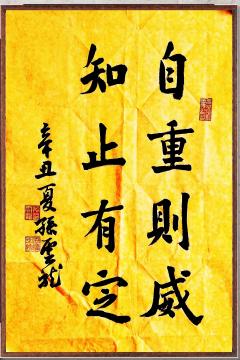 自重則威
知止有定
辛丑夏孫雲龍